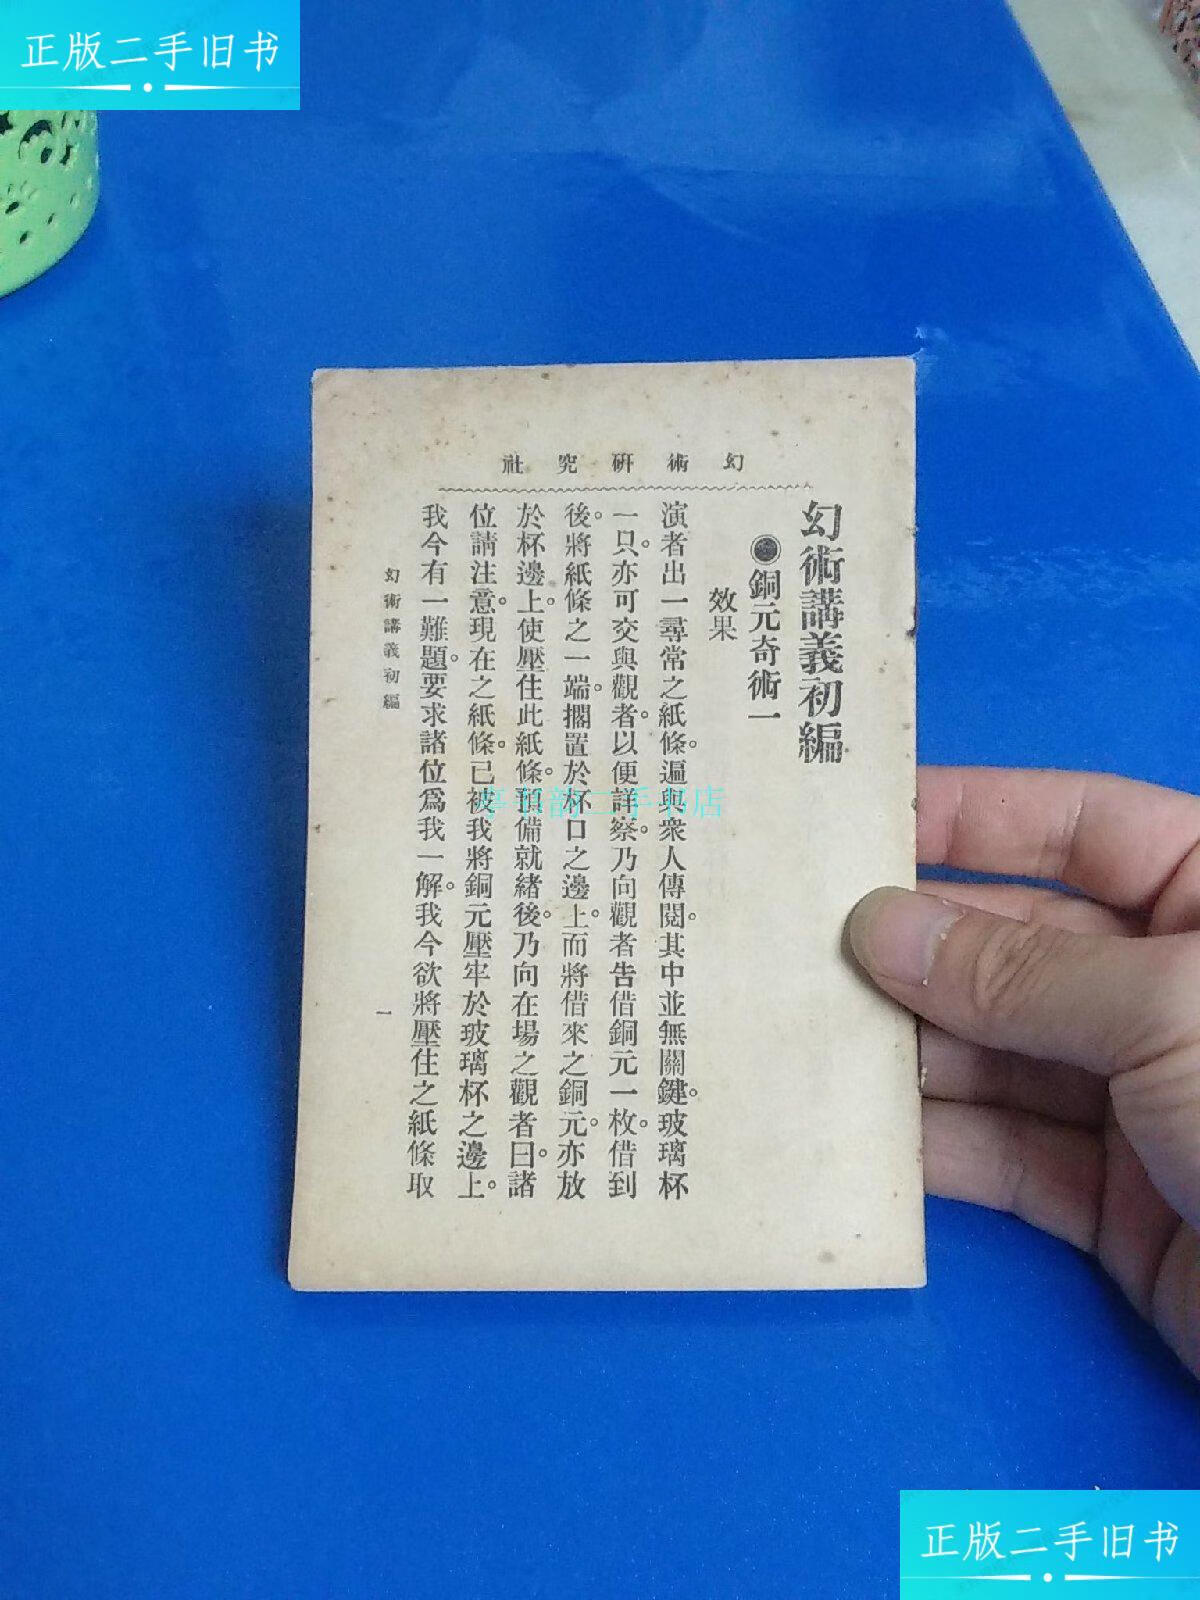 正版二手旧书
幻術研究社
幻術講義初編
◉銅元奇術一
效果
演者出一尋常之紙條。遍與衆人傳閱。其中並無關鍵。玻璃杯
一只。亦可交與觀者。以便詳察。乃向觀者告借銅元一枚。借到
後。將紙條之一端。擱置於杯口之邊上。而將借來之銅元。亦放
於杯邊上。使壓住此紙條。預備就緒後。乃向在場之觀者曰。諸
位請注意。現在之紙條。已被我將銅元壓牢於玻璃杯之邊上。
我今有一難題。要求諸位爲我一解。我今欲將壓住之紙條取
幻術講義初編
一
书韵二手书店
正版二手旧书